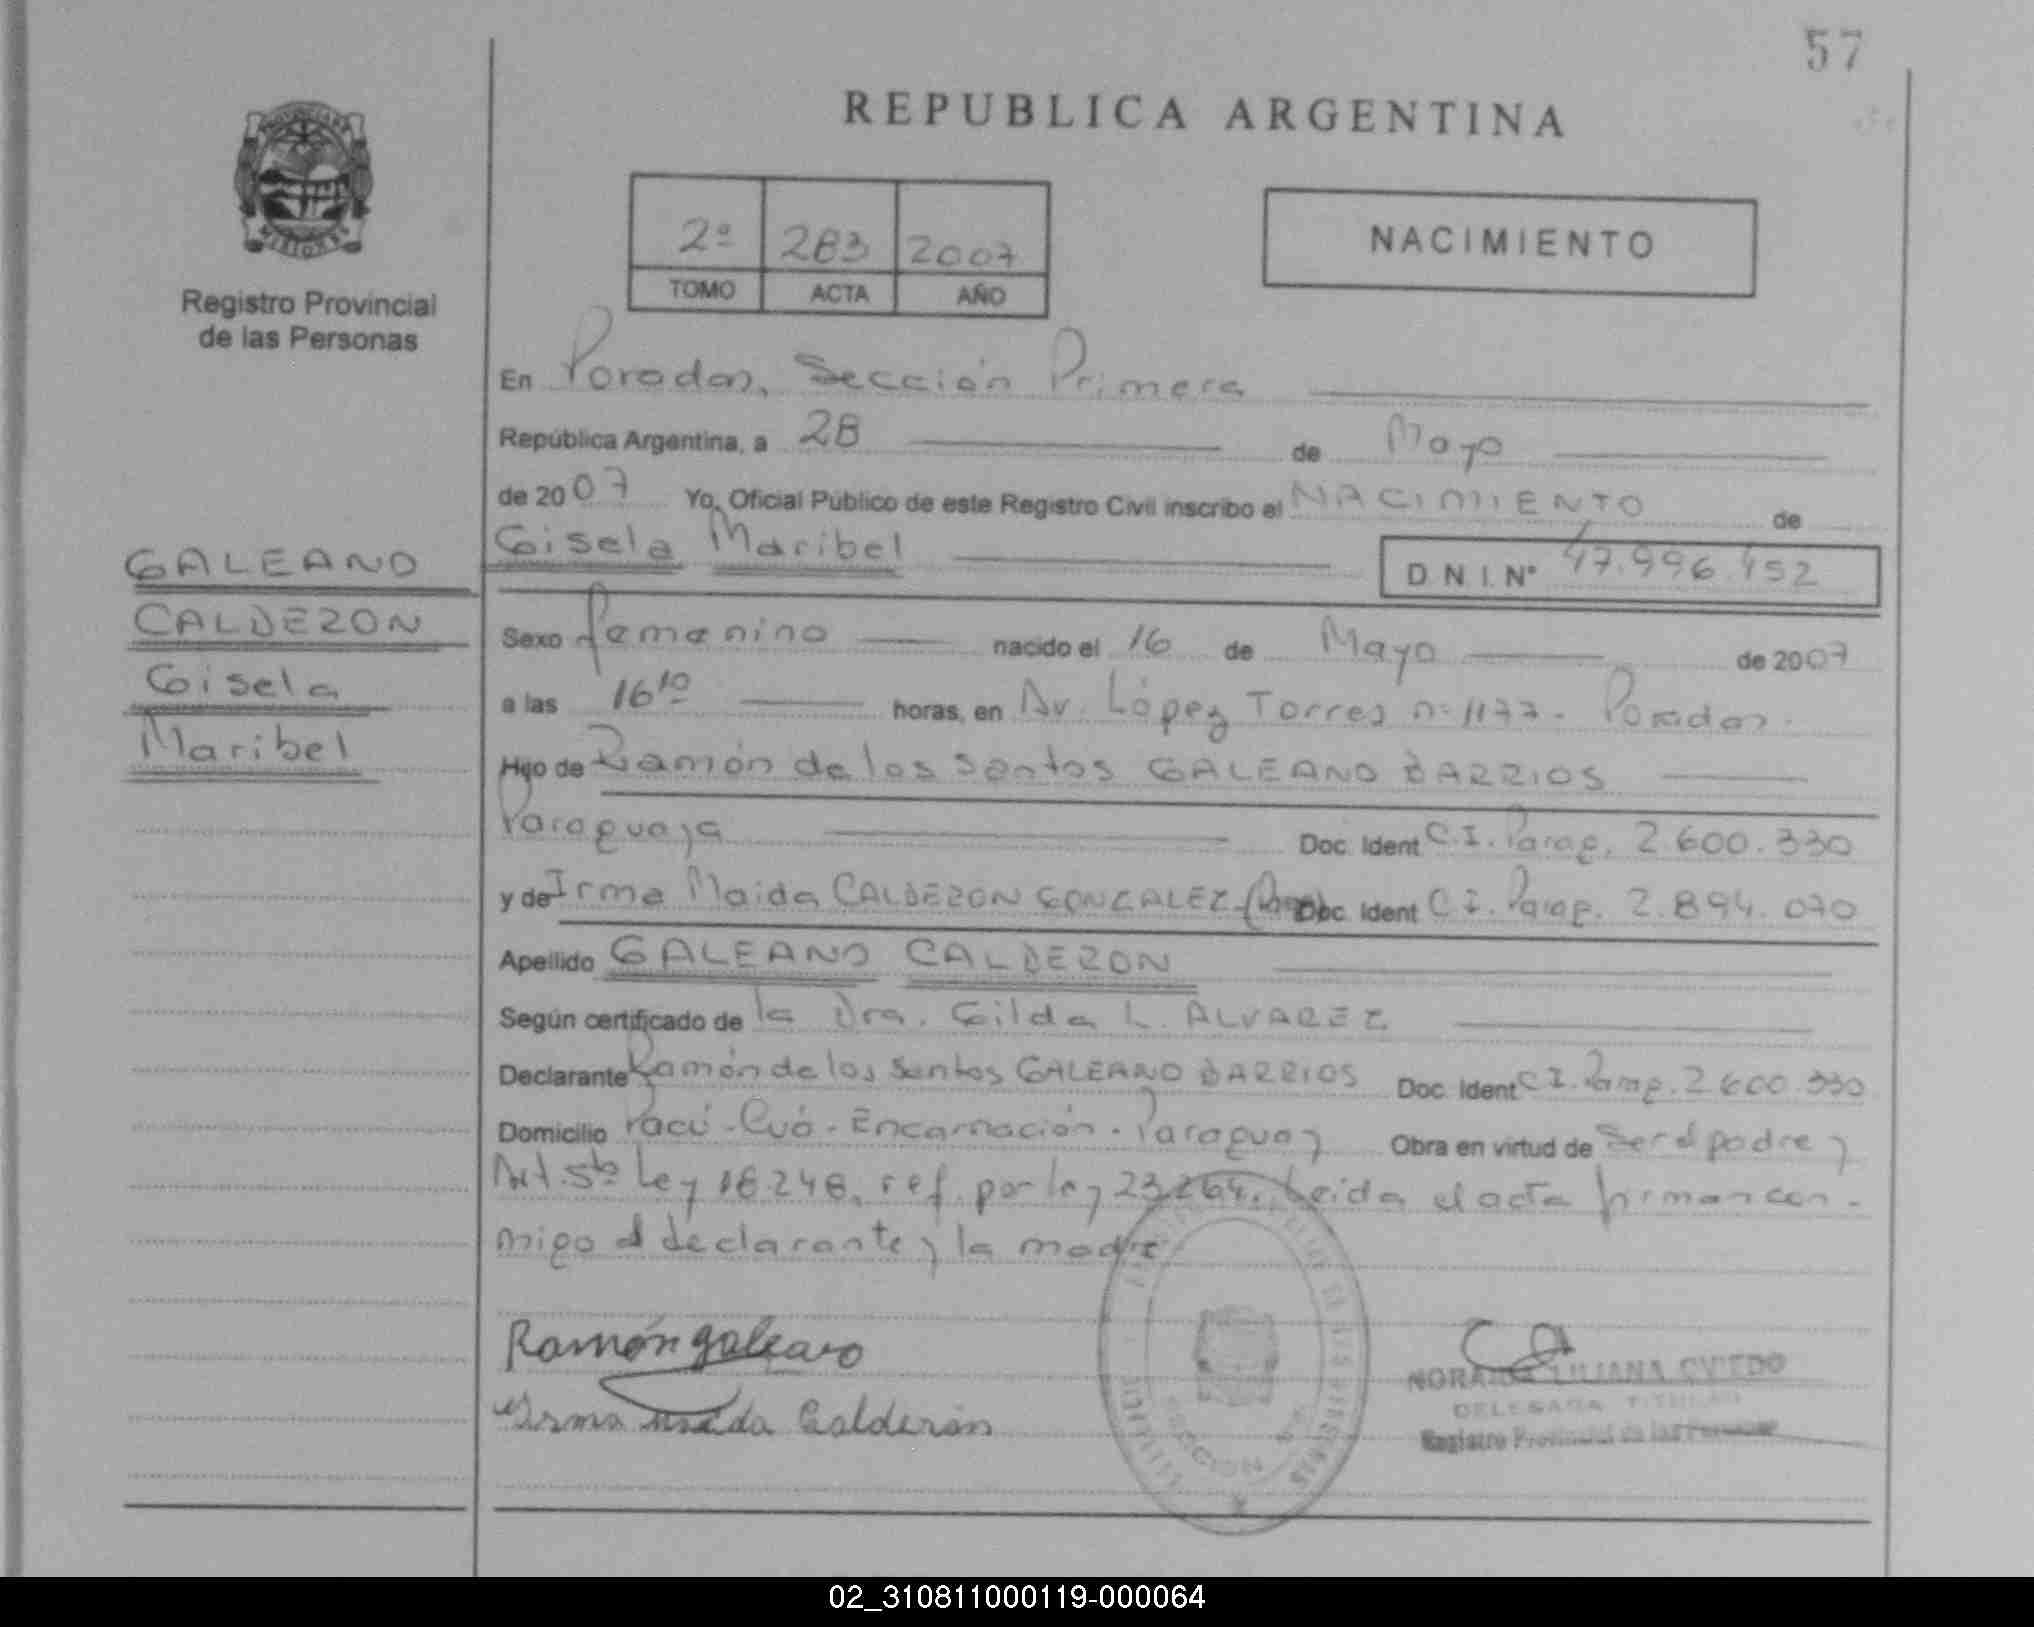 57
REPUBLICA ARGENTINA
2º 283 2007
TOMO ACTA AÑO
NACIMIENTO
MISIONES
Registro Provincial
de las Personas
En Posadas, Sección Primera
República Argentina, a 28 de Mayo
de 2007 Yo, Oficial Público de este Registro Civil inscribo el NACIMIENTO de
Gisela Maribel
D N I. Nº 47.996.452
GALEANO
CALDERON
Gisela
Maribel
Sexo femenino nacido el 16 de Mayo de 2007
a las 16 10 horas, en Av. López Torres nº 1177 - Posadas.
Hijo de Ramón de los Santos GALEANO BARRIOS
Paraguaya Doc. Ident C.I. Parag. 2.600.330
y de Irma Maida CALDERON GONZALEZ - Doc. Ident C.I. Parag. 2.894.070
Apellido GALEANO CALDERON
Según certificado de la Dra. Gilda L. ALVAREZ
Declarante Ramón de los Santos GALEANO BARRIOS Doc. Ident C.I. Parag. 2.600.330
Domicilio Pacú-Cuá-Encarnación-Paraguay Obra en virtud de Ser el padre y
Art. 5to Ley 18.248, ref. por ley 23.264. Leida el acta firman con-
migo el declarante y la madre
Ramón galeano
Irma Calderón
SECCION
LILIANA OVIEDO
DELEGADA TITULAR
Registro Provincial de las Personas
02_310811000119-000064